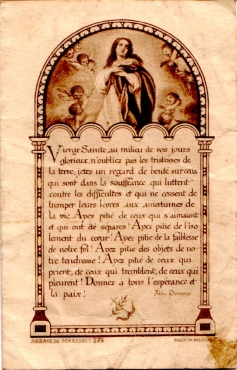 Vierge Sainte, au milieu de vos jours
glorieux, n'oubliez pas les tristesses de
la terre, jetez un regard de bonté sur ceux
qui sont dans la souffrance, qui luttent
contre les difficultés et qui ne cessent de
tremper leurs lèvres aux amertumes de
la vie. Ayez pitié de ceux qui s'aimaient
et qui ont été séparés! Ayez pitié de l'iso-
lement du cœur! Ayez pitié de la faiblesse
de notre foi! Ayez pitié des objets de no-
tre tendresse! Ayez pitié de ceux qui
prient, de ceux qui tremblent, de ceux qui
pleurent! Donnez à tous l'espérance et
la paix!
ABBAYE DE MAREDRET 276
MADE IN BELGIUM